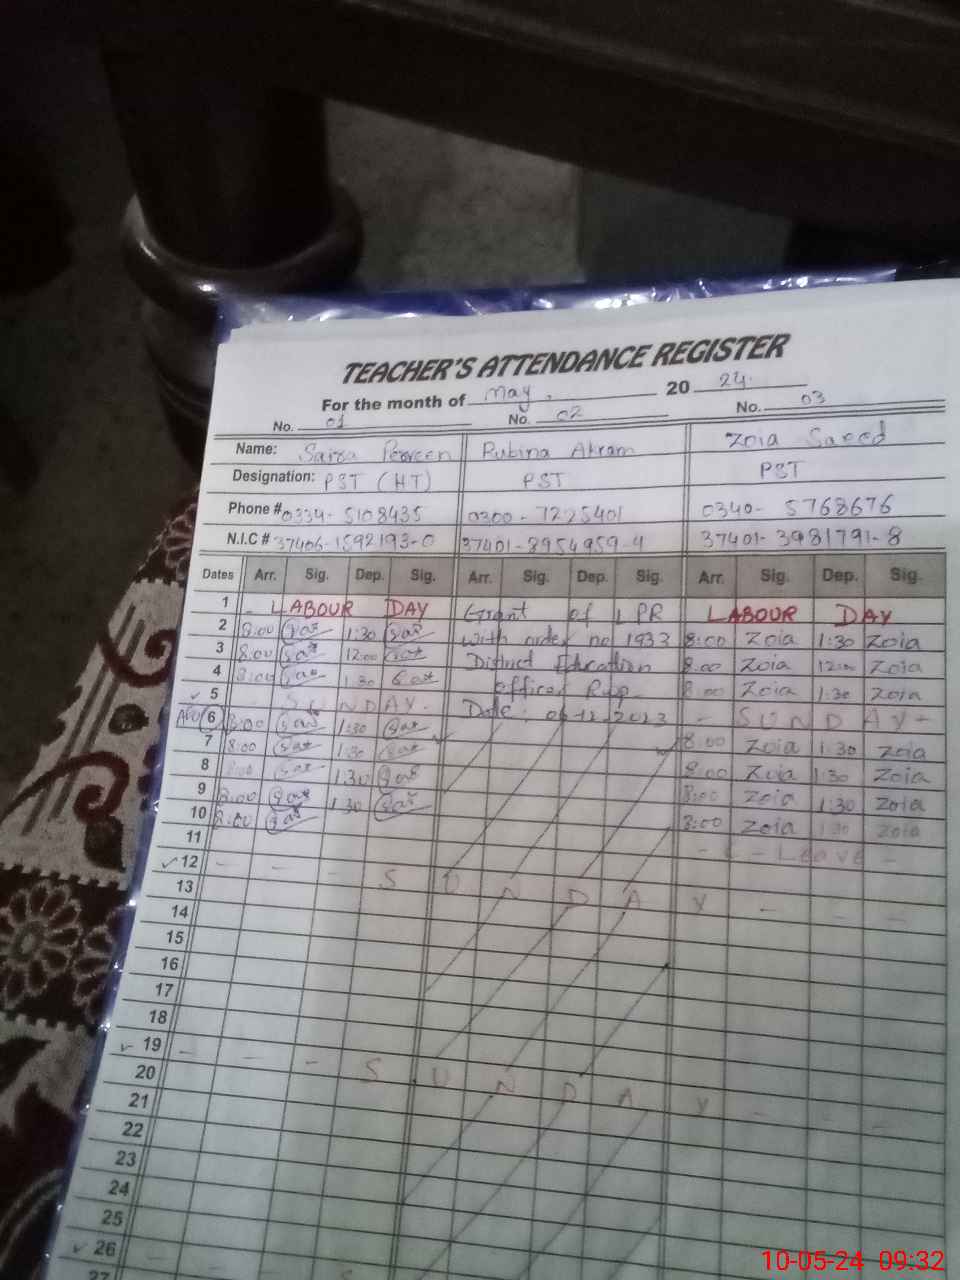 TEACHER'S ATTENDANCE REGISTER
For the month of May, 20 24.
No. 01 No. 02 No. 03
Name: Saira Perveen Rubina Akram Zoia Saeed
Designation: PST (HT) PST PST
Phone # 0334-5108435 0300-7225401 0340-5768676
N.I.C # 37406-1592193-0 37401-8954959-4 37401-3981791-8
Dates Arr. Sig. Dep. Sig. Arr. Sig. Dep. Sig. Arr. Sig. Dep. Sig.
1 - LABOUR DAY Grant of LPR LABOUR DAY
2 8:00 1:30 with order no 1933 8:00 Zoia 1:30 Zoia
3 8:00 12:00 District Education 8:00 Zoia 12:00 Zoia
4 8:00 1:30 officer Rwp. 8:00 Zoia 1:30 Zoia
✓ 5 SUNDAY- Date: 2023 - SUNDAY -
6 8:00 1:30 8:00 Zoia 1:30 Zoia
7 8:00 1:30 8:00 Zoia 1:30 Zoia
8 8:00 1:30 8:00 Zoia 1:30 Zoia
9 8:00 1:30 8:00 Zoia 1:30 Zoia
10 8:00 - Leave -
11
✓ 12 - - - SUNDAY - - -
13
14
15
16
17
18
✓ 19 - - - SUNDAY - - -
20
21
22
23
24
25
✓ 26
27
10-05-24 09:32